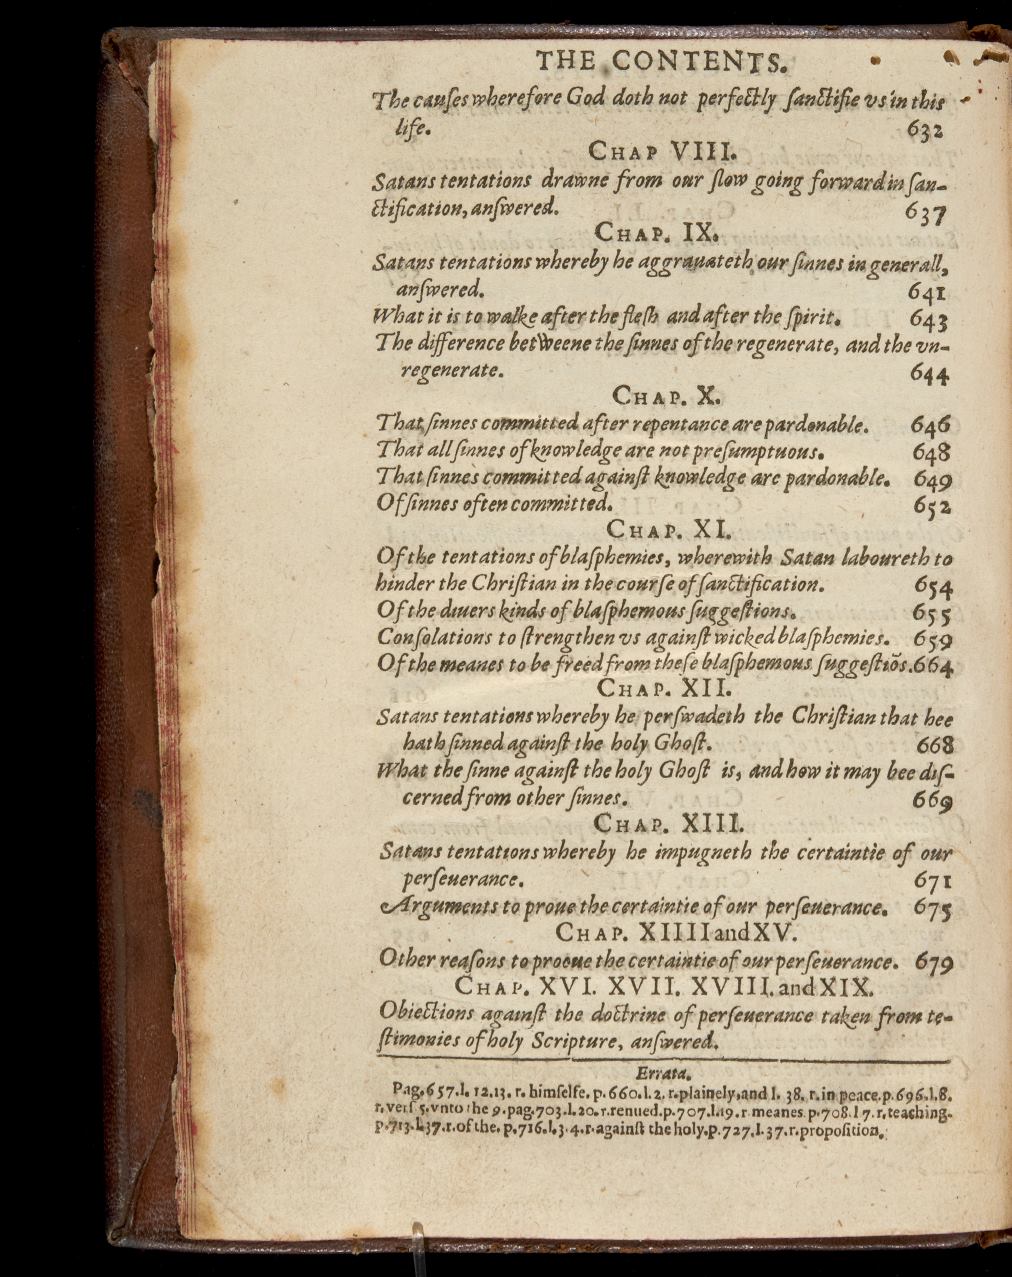 THE CONTENTS.
The cauſes wherefore God doth not perfectly ſanctifie vs in this
life. 632
CHAP VIII.
Satans tentations drawne from our ſlow going forward in ſan-
ctification, anſwered. 637
CHAP. IX.
Satans tentations whereby he aggrauateth our ſinnes in generall,
anſwered. 641
What it is to walke after the fleſh and after the ſpirit. 643
The difference betweene the ſinnes of the regenerate, and the vn-
regenerate. 644
CHAP. X.
That ſinnes committed after repentance are pardonable. 646
That all ſinnes of knowledge are not preſumptuous. 648
That ſinnes committed againſt knowledge are pardonable. 649
Of ſinnes often committed. 652
CHAP. XI.
Of the tentations of blaſphemies, wherewith Satan laboureth to
hinder the Chriſtian in the courſe of ſanctification. 654
Of the diuers kinds of blaſphemous ſuggeſtions. 655
Conſolations to ſtrengthen vs againſt wicked blaſphemies. 659
Of the meanes to be freed from theſe blaſphemous ſuggeſtiõs. 664
CHAP. XII.
Satans tentations whereby he perſwadeth the Chriſtian that hee
hath ſinned againſt the holy Ghoſt. 668
What the ſinne againſt the holy Ghoſt is, and how it may bee diſ-
cerned from other ſinnes. 669
CHAP. XIII.
Satans tentations whereby he impugneth the certaintie of our
perſeuerance. 671
Arguments to proue the certaintie of our perſeuerance. 675
CHAP. XIIII and XV.
Other reaſons to prooue the certaintie of our perſeuerance. 679
CHAP. XVI. XVII. XVIII. and XIX.
Obiections againſt the doctrine of perſeuerance taken from te-
ſtimonies of holy Scripture, anſwered.
Errata.
Pag. 657. l. 12.13. r. himſelfe. p. 660. l. 2. r. plainely, and l. 38. r. in peace. p. 696. l. 8.
r. verſ 5. vnto the 9. pag. 703. l. 20. r. renued. p. 707. l. 19. r. meanes. p. 708. l 7. r. teaching.
p. 713. l. 37. r. of the. p. 716. l. 3.4. r. againſt the holy. p. 727. l. 37. r. propoſition.